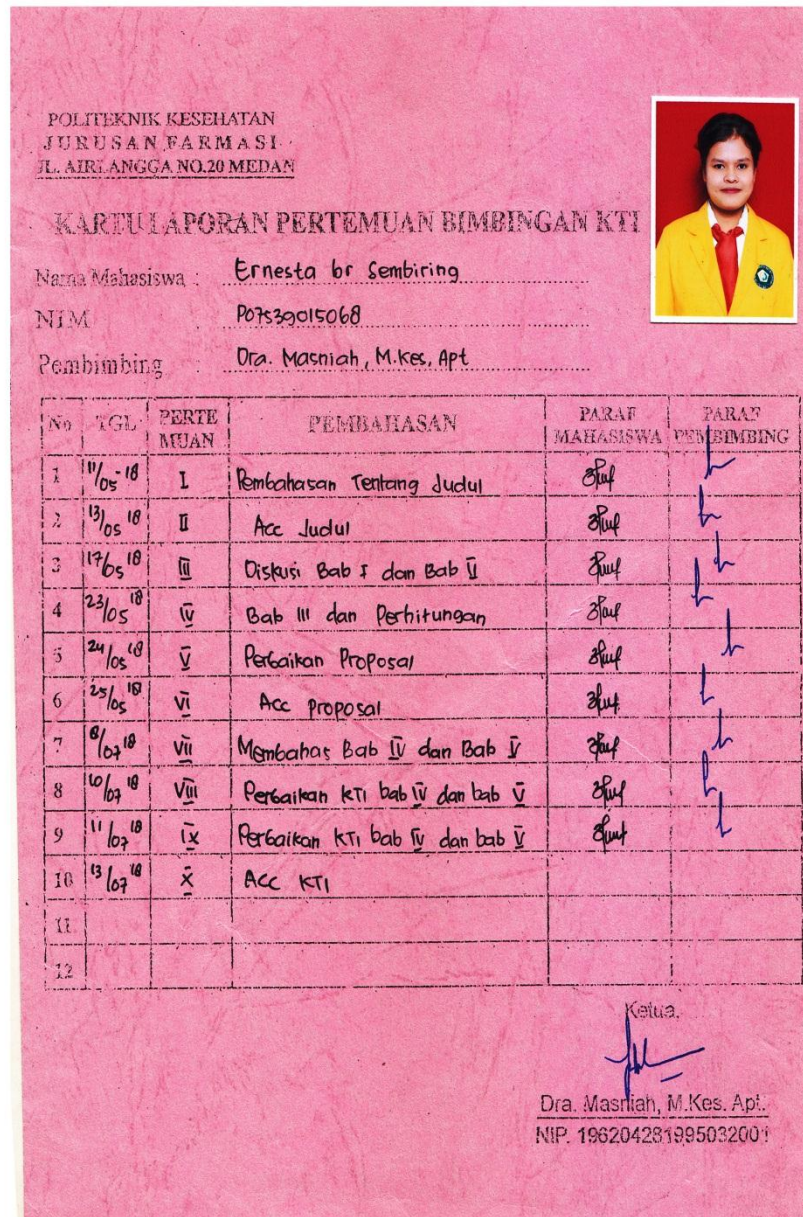 POLITEKNIK KESEHATAN
JURUSAN FARMASI
JL. AIRLANGGA NO.20 MEDAN
KARTU LAPORAN PERTEMUAN BIMBINGAN KTI
Nama Mahasiswa : Ernesta br Sembiring
NIM : P07539015068
Pembimbing : Dra. Masniah, M.Kes, Apt
No TGL PERTE MUAN PEMBAHASAN PARAF MAHASISWA PARAF PEMBIMBING
1 11/05-18 I Pembahasan Tentang Judul
2 13/05 18 II Acc Judul
3 17/05 18 III Diskusi Bab I dan Bab II
4 23/05 18 IV Bab III dan Perhitungan
5 24/05 18 V Perbaikan Proposal
6 25/05 18 VI Acc proposal
7 8/07 18 VII Membahas Bab IV dan Bab V
8 10/07 18 VIII Perbaikan KTI bab IV dan bab V
9 11/07 18 IX Perbaikan KTI bab IV dan bab V
10 13/07 18 X ACC KTI
11
12
Ketua,
Dra. Masniah, M.Kes. Apt.
NIP. 196204281995032001